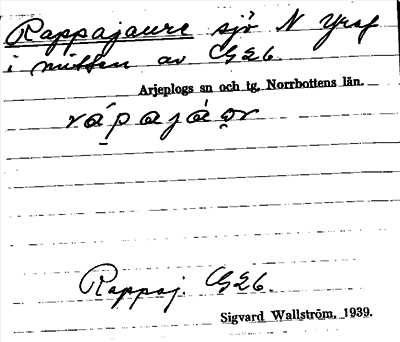 Rappajaure sjö N Yraf
i mitten av G26.
Arjeplogs sn och tg, Norrbottens län.
rápajàǫr
Rappaj. G26.
Sigvard Wallström, 1939.